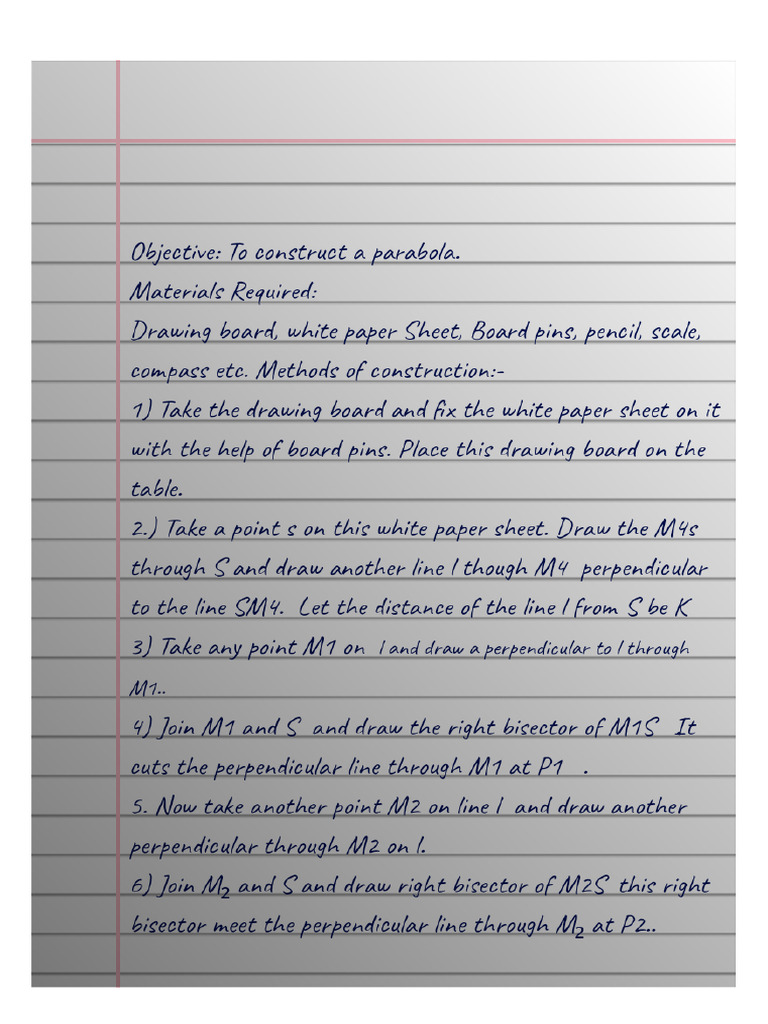 Objective: To construct a parabola.
Materials Required:
Drawing board, white paper Sheet, Board pins, pencil, scale,
compass etc. Methods of construction:-
1) Take the drawing board and fix the white paper sheet on it
with the help of board pins. Place this drawing board on the
table.
2.) Take a point s on this white paper sheet. Draw the M4s
through S and draw another line l though M4 perpendicular
to the line SM4. Let the distance of the line l from S be K
3) Take any point M1 on l and draw a perpendicular to l through
M1..
4) Join M1 and S and draw the right bisector of M1S It
cuts the perpendicular line through M1 at P1 .
5. Now take another point M2 on line l and draw another
perpendicular through M2 on l.
6) Join M₂ and S and draw right bisector of M2S this right
bisector meet the perpendicular line through M₂ at P2..